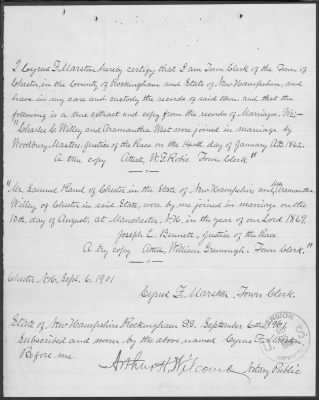 I Cyrus F. Marston hereby certify that I am Town Clerk of the Town of
Chester, in the County of Rockingham and State of New Hampshire, and
have in my care and custody the records of said town and that the
following is a true extract and copy from the records of Marriages, Viz:-
"Charles C. Willey and Aramantha West were joined in marriage by
Woodbury Masters, Justice of the Peace on the 14th. day of January A.D. 1862.
A true copy Attest, W. F. Robie Town Clerk"
"Mr Samuel Rand of Chester in the State of New Hampshire and Mrs Aramantha
Willey of Chester in said State, were by me joined in marriage on the
10th. day of August, at Manchester N.H. in the year of our Lord 1869.
Joseph E. Bennett, Justice of the Peace
A try copy Attest, William Greenough, Town Clerk."
Chester N.H. Sept. 6, 1901
Cyrus F. Marston, Town Clerk.
State of New Hampshire Rockingham SS. September 6 1901
Subscribed and sworn by the above named Cyrus F. Marston.
Before me
Arthur H Wilcomb Notary Public
PENSION